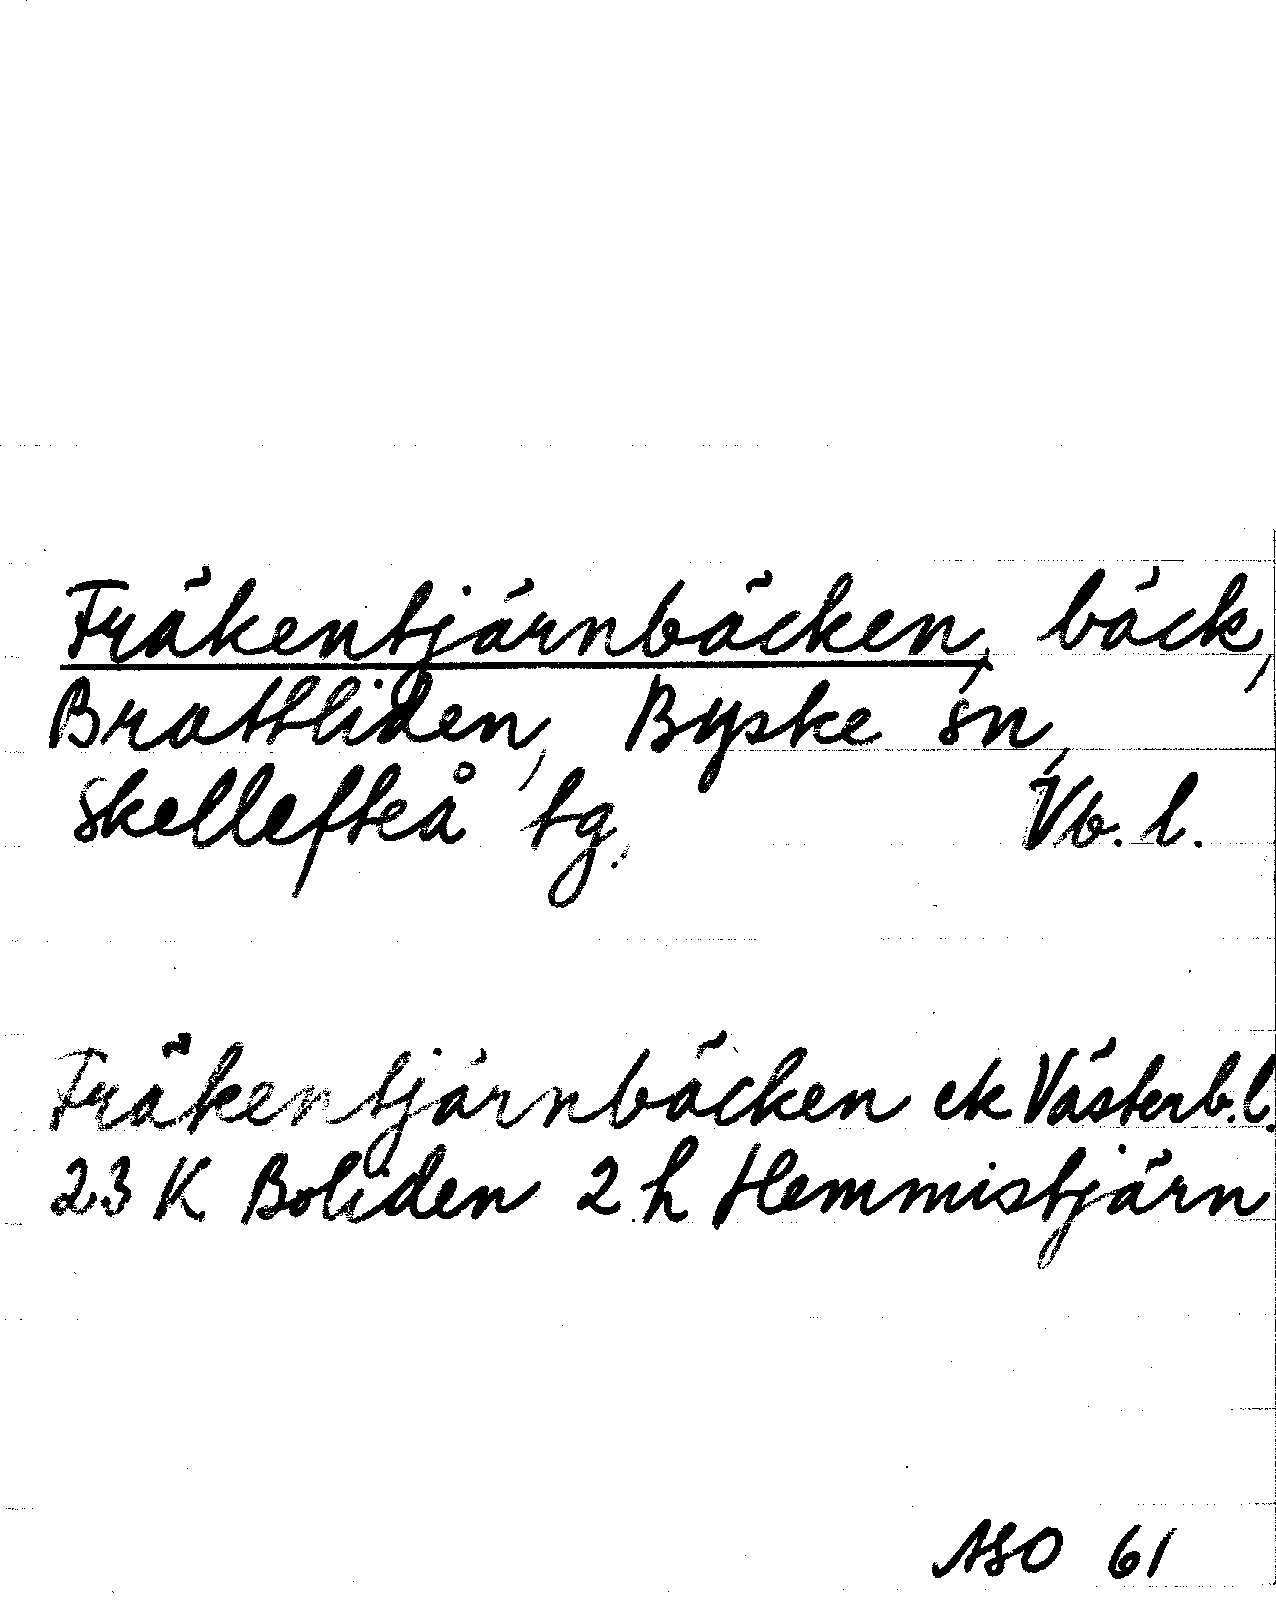 Fräkentjärnbäcken, bäck,
Brattliden, Byske sn,
Skellefteå tg. Vb. l.
Fräkentjärnbäcken ek Västerb.l.
23 K Boliden 2 h Hemmistjärn
ASO 61